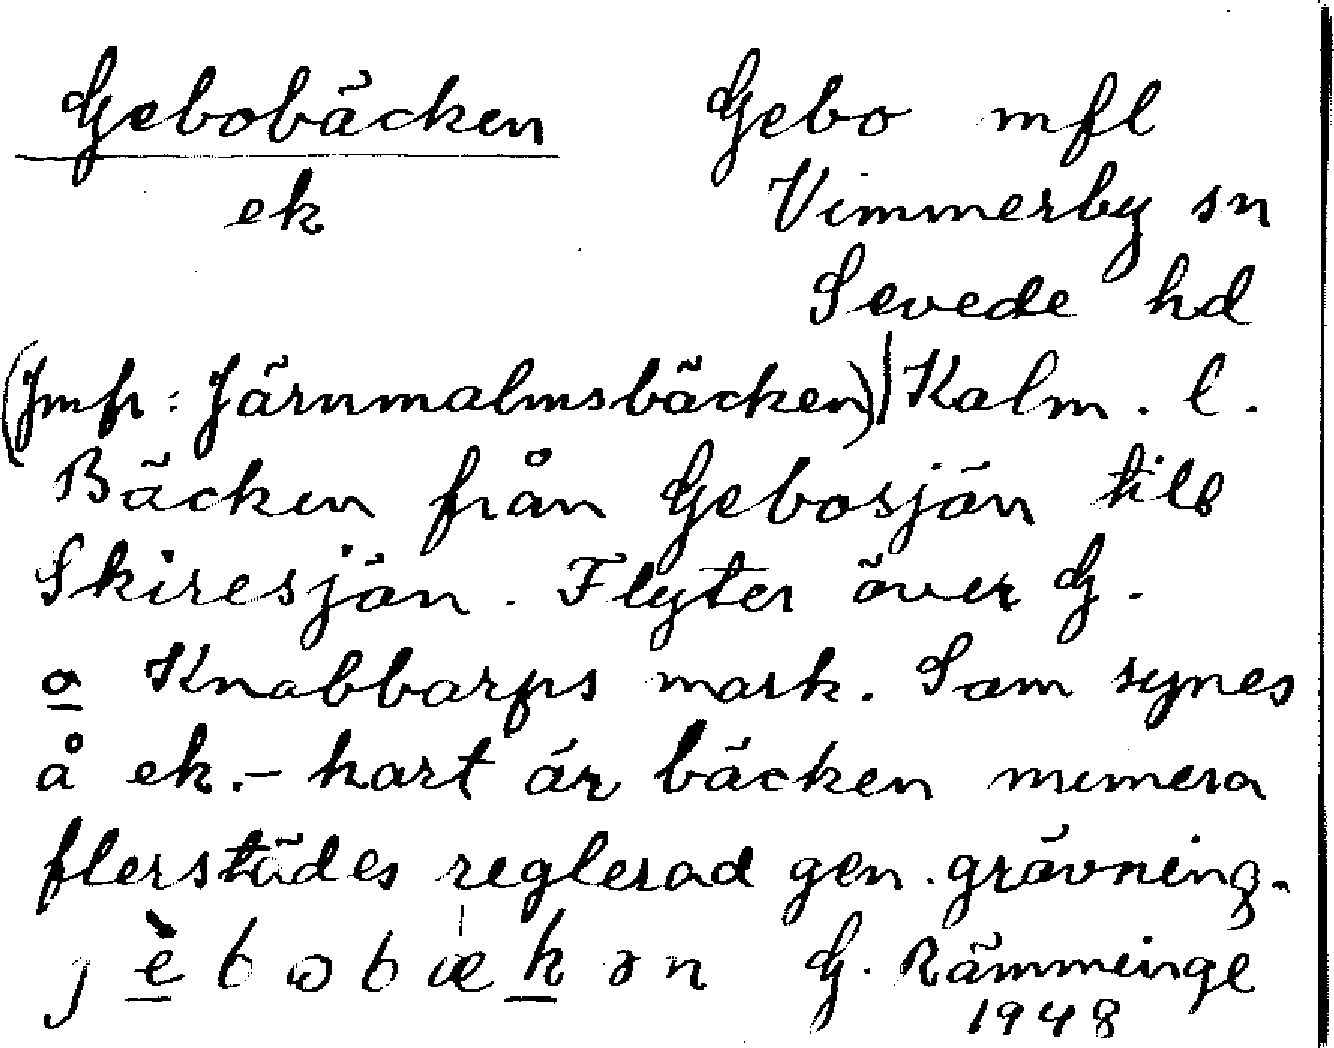 Gebobäcken Gebo mfl
ek Vimmerby sn
Sevede hd
(Jmfr: Järnmalmsbäcken) Kalm. l.
Bäcken från Gebosjön till
Skiresjön. Flyter över G.
o Knabbarps mark. Som synes
å ek.-kart är bäcken numera
flerstädes reglerad gen. grävning.
G. Rämminge
1948